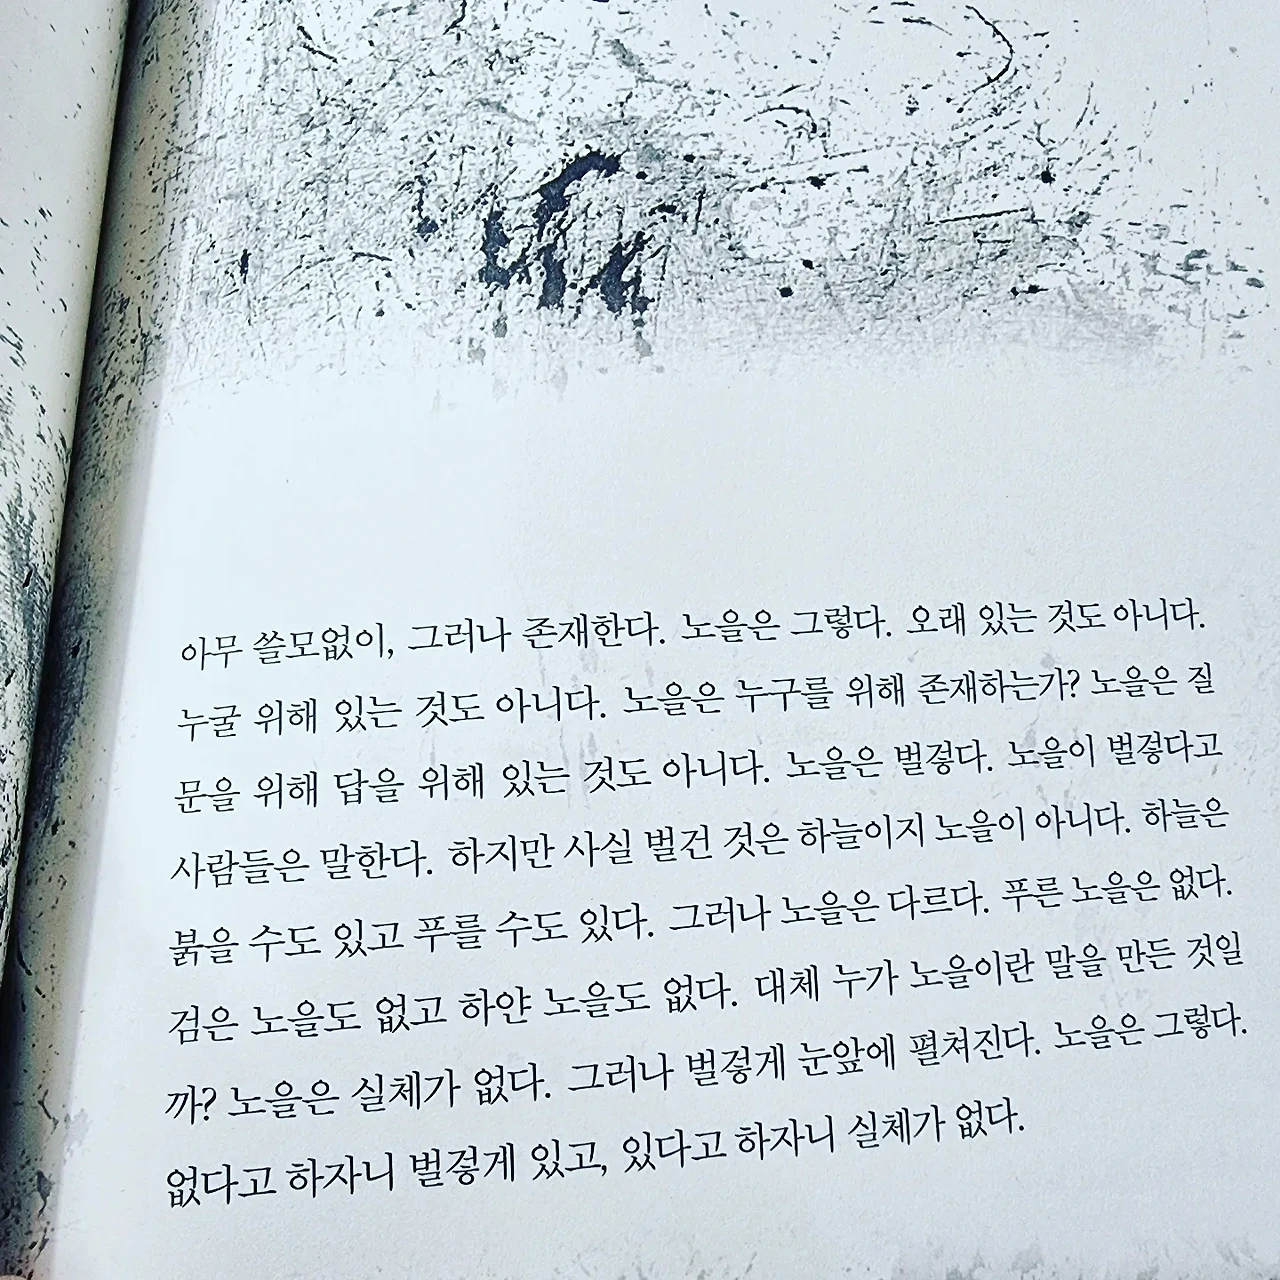 아무 쓸모없이, 그러나 존재한다. 노을은 그렇다. 오래 있는 것도 아니다.
누굴 위해 있는 것도 아니다. 노을은 누구를 위해 존재하는가? 노을은 질
문을 위해 답을 위해 있는 것도 아니다. 노을은 벌겋다. 노을이 벌겋다고
사람들은 말한다. 하지만 사실 벌건 것은 하늘이지 노을이 아니다. 하늘은
붉을 수도 있고 푸를 수도 있다. 그러나 노을은 다르다. 푸른 노을은 없다.
검은 노을도 없고 하얀 노을도 없다. 대체 누가 노을이란 말을 만든 것일
까? 노을은 실체가 없다. 그러나 벌겋게 눈앞에 펼쳐진다. 노을은 그렇다.
없다고 하자니 벌겋게 있고, 있다고 하자니 실체가 없다.